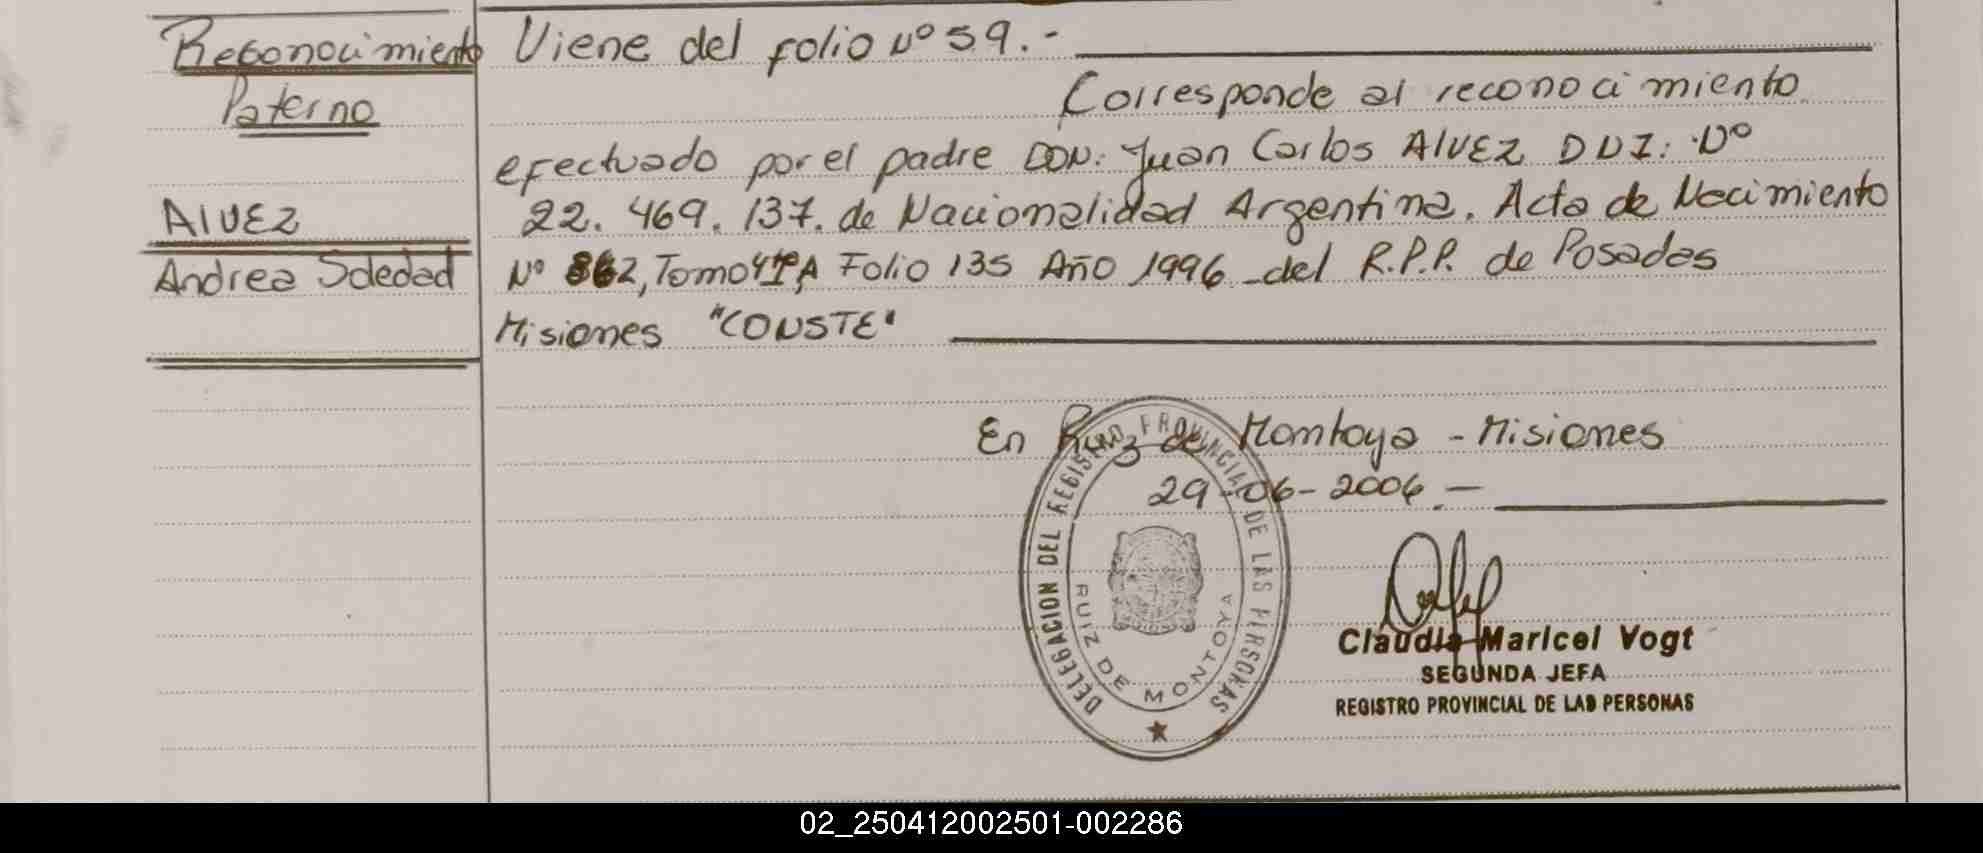 Reconocimiento
Paterno
ALVEZ
Andrea Soledad
Viene del folio Nº 59.-
Corresponde al reconocimiento
efectuado por el padre DON: Juan Carlos ALVEZ DNI: Nº
22.469.137. de Nacionalidad Argentina. Acta de Nacimiento
Nº 862, Tomo Folio 135 Año 1996 del R.P.P. de Posadas
Misiones "CONSTE"
En Ruiz de Montoya - Misiones
29-06-2006.-
DELEGACION DEL REGISTRO PROVINCIAL DE LAS PERSONAS
RUIZ DE MONTOYA
Claudia Maricel Vogt
SEGUNDA JEFA
REGISTRO PROVINCIAL DE LAS PERSONAS
02_250412002501-002286